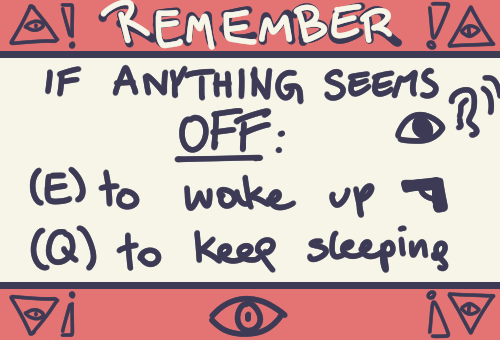 REMEMBER
IF ANYTHING SEEMS
OFF:
(E) to wake up
(Q) to keep sleeping